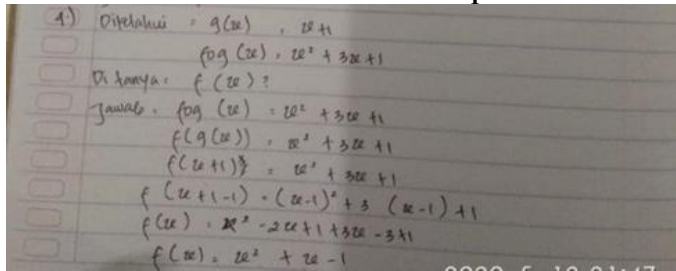 4.) Diketahui = g(x) = x+1
fog (x) = x² + 3x+1
Ditanya = f (x) ?
Jawab = fog (x) = x² + 3x +1
f(g(x)) = x² + 3x +1
f(x+1) = x² + 3x +1
f (x+1-1) = (x-1)² + 3 (x-1) +1
f(x) = x² -2x+1 +3x -3+1
f(x) = x² + x -1